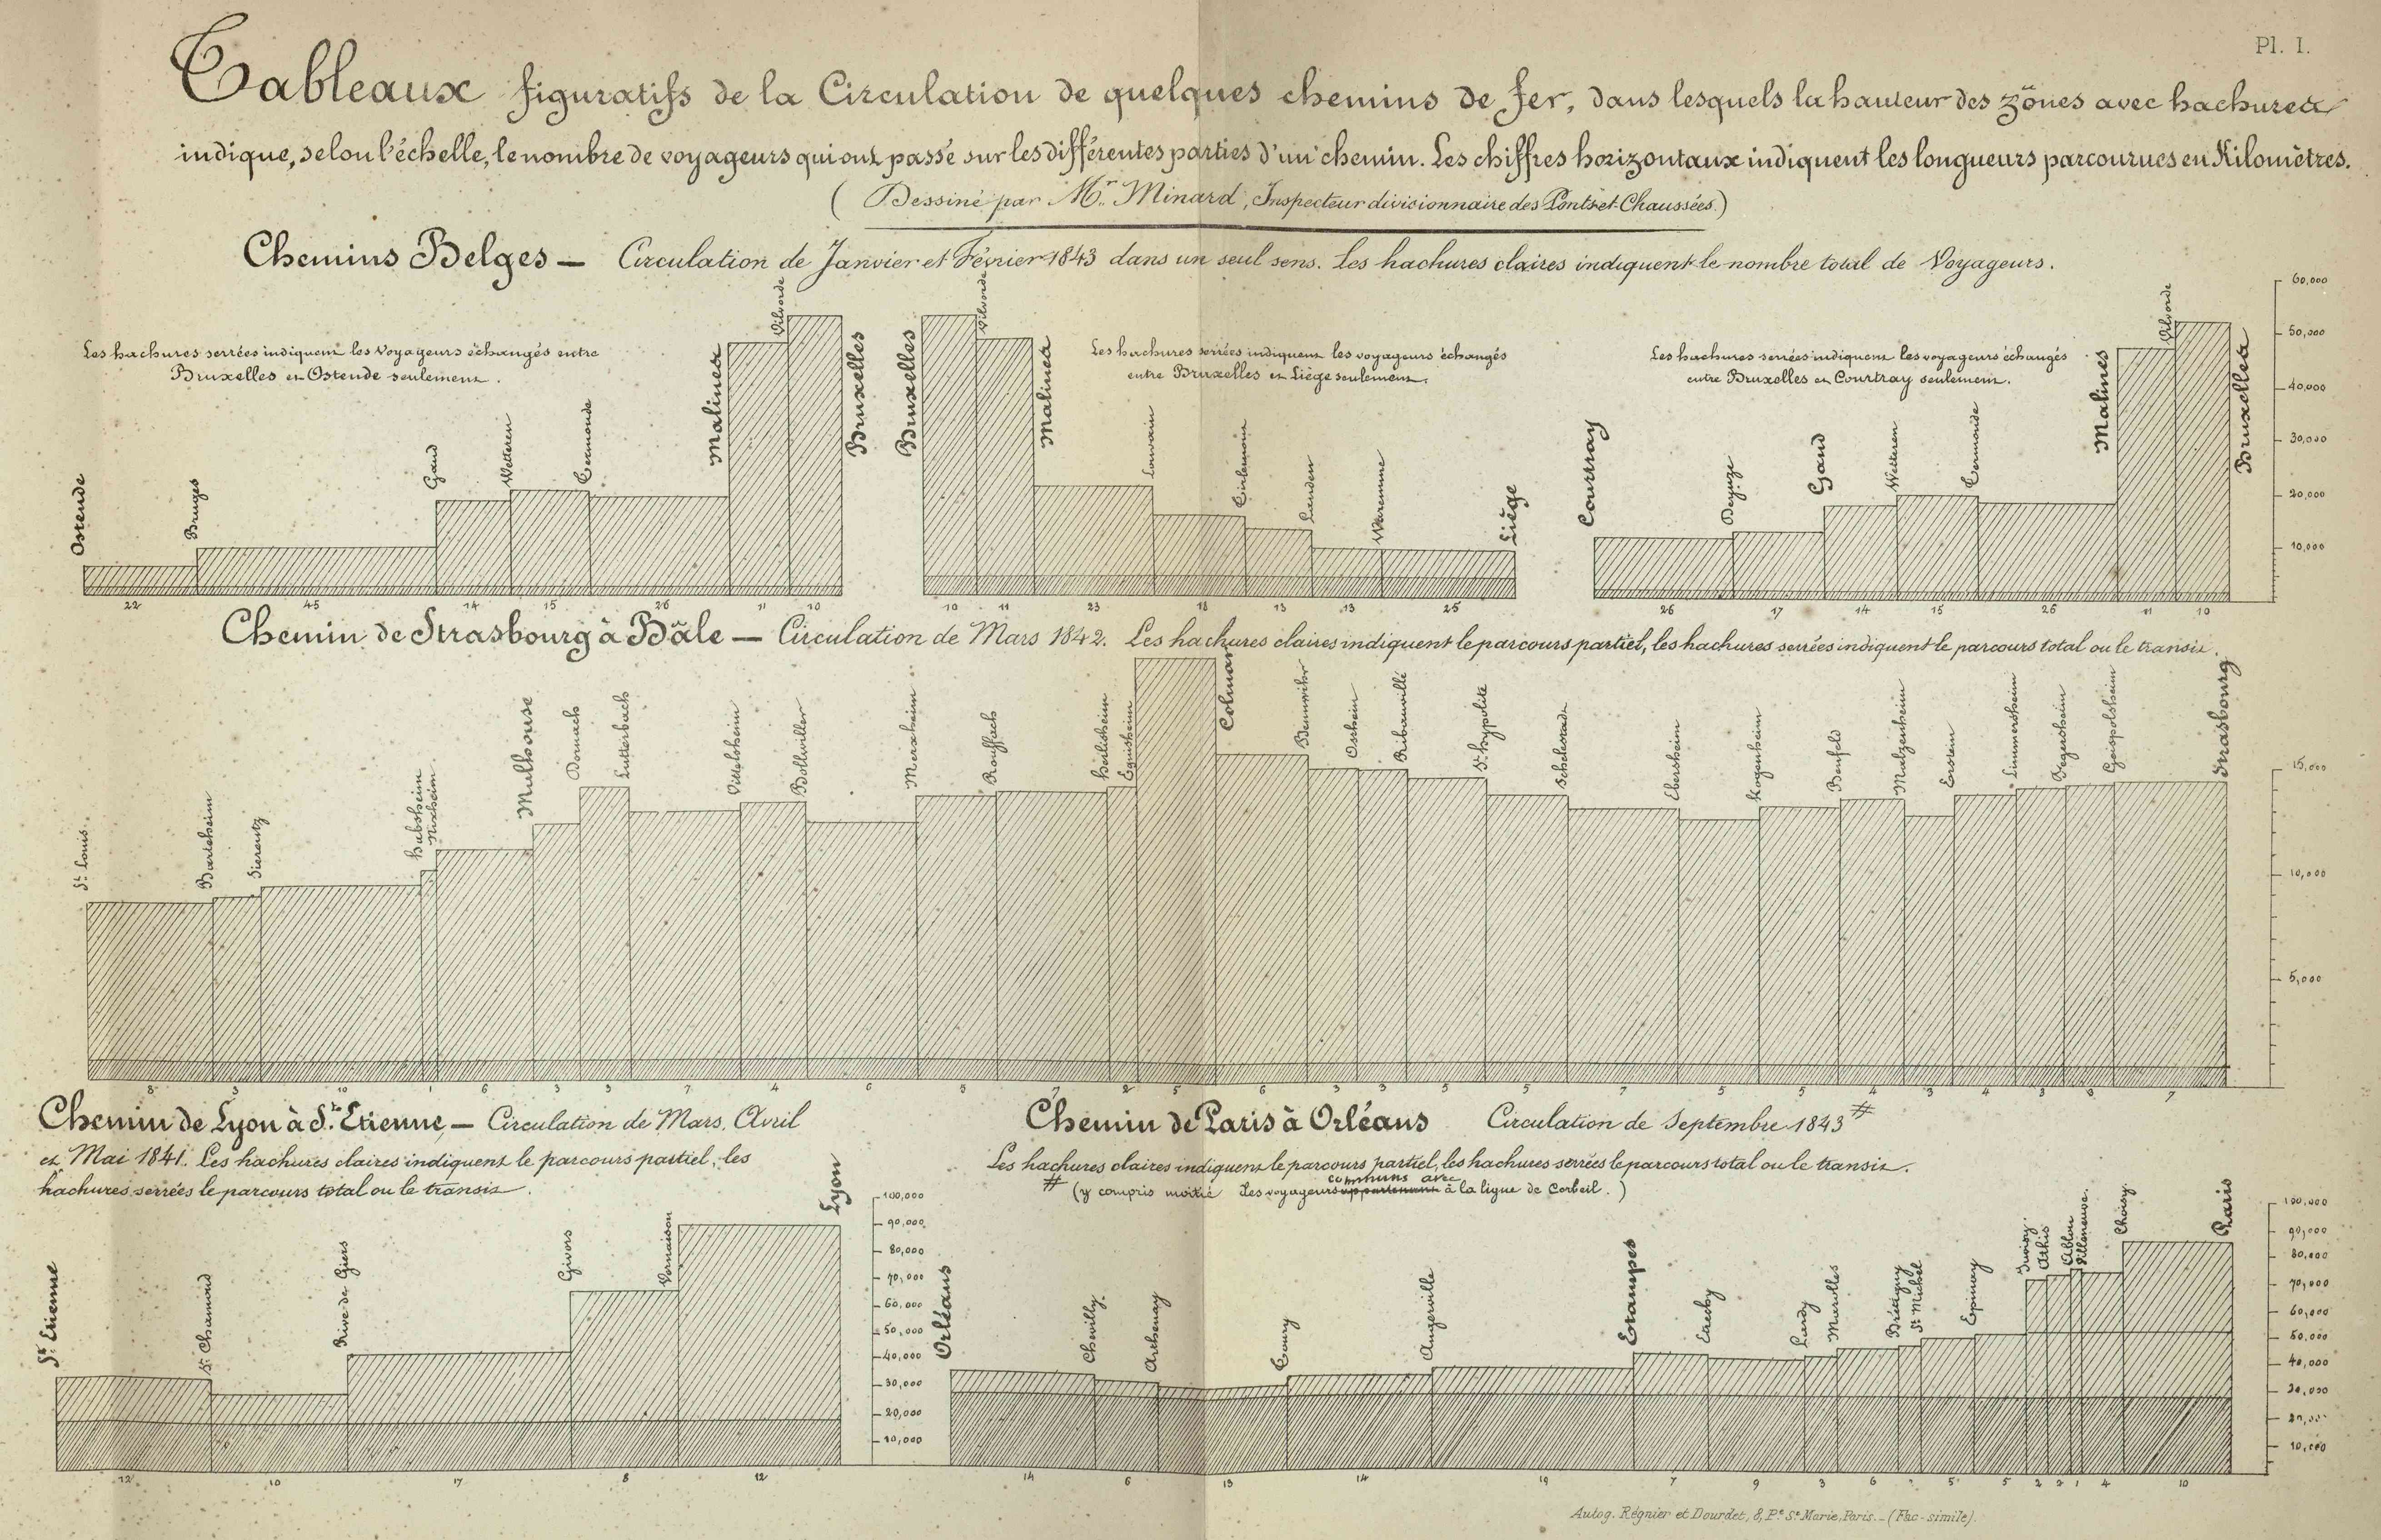 Pl. I.
Tableaux figuratifs de la Circulation de quelques chemins de fer, dans lesquels la hauteur des zônes avec hachures
indique, selon l'échelle, le nombre de voyageurs qui ont passé sur les différentes parties d'un chemin. Les chiffres horizontaux indiquent les longueurs parcourues en Kilomètres.
( Dessiné par Mr. Minard, Inspecteur divisionnaire des Ponts et Chaussées.)
Chemins Belges — Circulation de Janvier et Février 1843 dans un seul sens. Les hachures claires indiquent le nombre total de Voyageurs.
Les hachures serrées indiquent les voyageurs échangés entre
Bruxelles et Ostende seulement.
Ostende
Bruges
Gand
Wetteren
Termonde
Malines
Vilvorde
Bruxelles
22 45 14 15 26 11 10
Les hachures serrées indiquent les voyageurs échangés
entre Bruxelles et Liège seulement.
Bruxelles
Vilvorde
Malines
Louvain
Tirlemont
Landen
Waremme
Liège
10 11 23 18 13 13 25
Les hachures serrées indiquent les voyageurs échangés
entre Bruxelles et Courtray seulement.
Courtray
Deynze
Gand
Wetteren
Termonde
Malines
Vilvorde
Bruxelles
26 17 14 15 26 11 10
60,000
50,000
40,000
30,000
20,000
10,000
Chemin de Strasbourg à Bâle — Circulation de Mars 1842. Les hachures claires indiquent le parcours partiel, les hachures serrées indiquent le parcours total ou le transit.
St. Louis
Bartenheim
Sierentz
Habsheim
Rixheim
Mulhouse
Dornach
Lutterbach
Wittelsheim
Bollwiller
Merxheim
Rouffach
Herlisheim
Eguisheim
Colmar
Bennwihr
Ostheim
Ribauvillé
St. hypolite
Schelestadt
Ebersheim
Kogenheim
Benfeld
Matzenheim
Erstein
Limmersheim
Fegersheim
Geispolsheim
Strasbourg
8 3 10 1 6 3 3 7 4 6 5 7 2 5 6 3 3 5 5 7 5 5 4 3 4 3 3 7
15,000
10,000
5,000
Chemin de Lyon à St. Etienne, — Circulation de Mars, Avril
et Mai 1841. Les hachures claires indiquent le parcours partiel, les
hachures serrées le parcours total ou le transit.
St. Etienne
St. Chamond
Rive de Giers
Givors
Vernaison
Lyon
12 10 17 8 12
100,000
90,000
80,000
70,000
60,000
50,000
40,000
30,000
20,000
10,000
Chemin de Paris à Orléans Circulation de Septembre 1843 #
Les hachures claires indiquent le parcours partiel, les hachures serrées le parcours total ou le transit.
# (y compris moitié des voyageurs communs avec à la ligne de Corbeil.)
Orléans
Chevilly
Arthenay
Toury
Angerville
Etampes
Etrechy
Lardy
Marolles
Brétigny
St. Michel
Epinay
Juvisy
Athis
Ablon
Villeneuve
Choisy
Paris
14 6 13 14 19 7 9 3 6 5 5 2 2 1 4 10
100,000
90,000
80,000
70,000
60,000
50,000
40,000
30,000
20,000
10,000
Autog. Régnier et Dourdet, 8, Pe. Ste. Marie, Paris. — (Fac-simile).